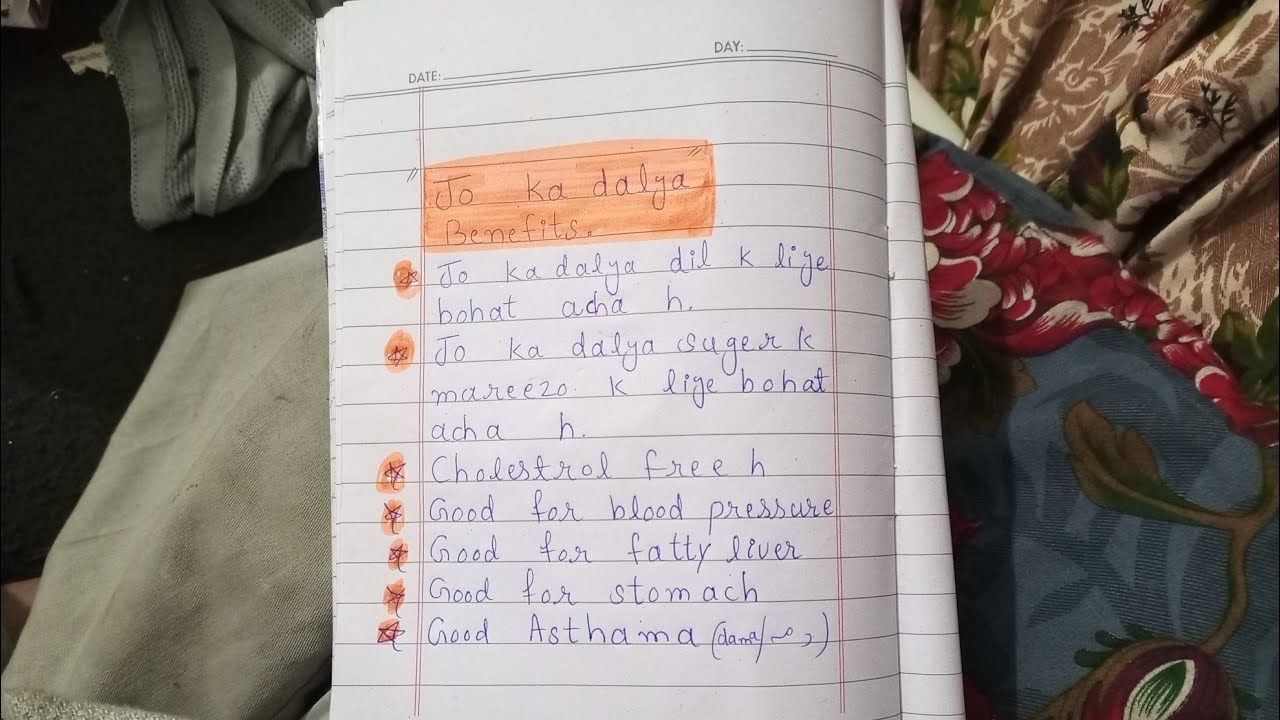 DAY:
DATE:
Jo ka dalya
Benefits.
Jo ka dalya dil k liye
bohat acha h.
Jo ka dalya suger k
mareezo k liye bohat
acha h.
Cholestrol free h
Good for blood pressure
Good for fatty liver
Good for stomach
Good Asthama (dama/دمہ)